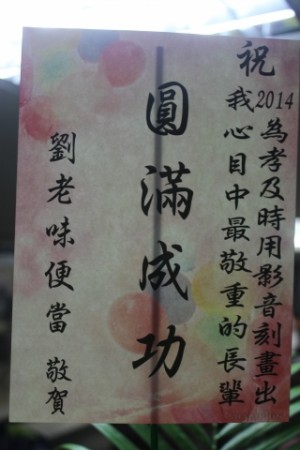 祝
2014為孝及時用影音刻畫出
我心目中最敬重的長輩
圓滿成功
劉老味便當 敬賀